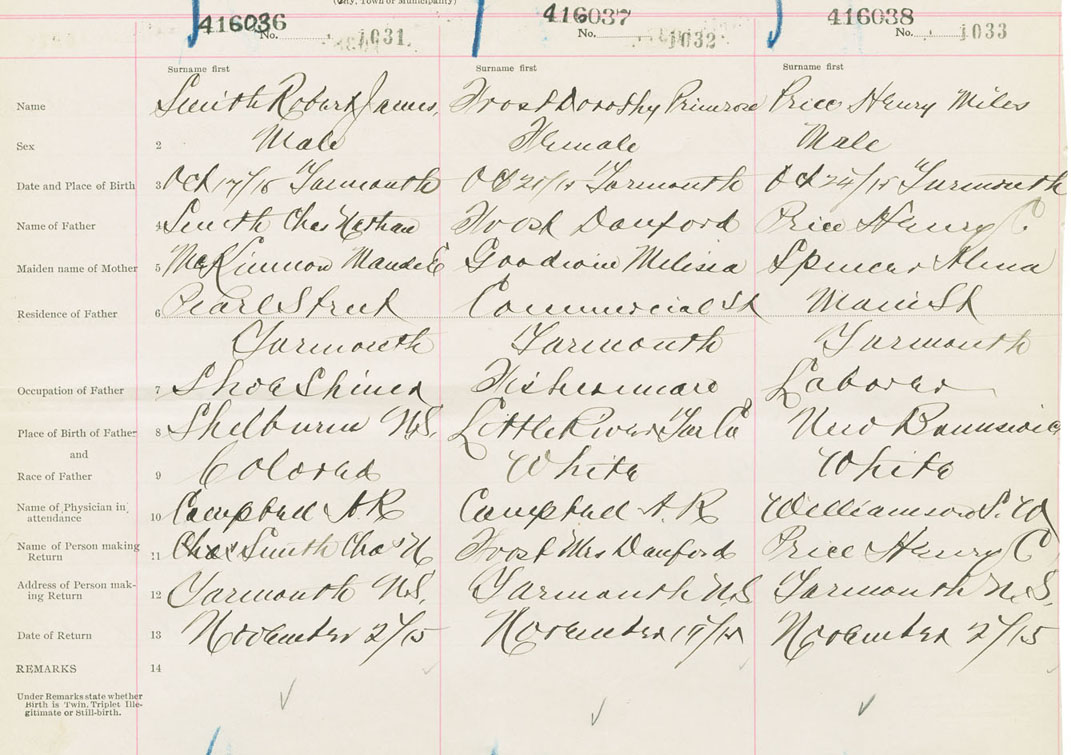 (City, Town or Municipality)
416036 416037 416038
No. 1031 No. 1032 No. 1033
Surname first Surname first Surname first
Name Smith Robert James, Frost Dorothy Primrose Price Henry Miles
Sex 2 Male Female Male
Date and Place of Birth 3 Oct 17/15 Yarmouth Oct 21/15 Yarmouth Oct 24/15 Yarmouth
Name of Father 4 Smith Chas Nathan Frost Danford Price Henry C.
Maiden name of Mother 5 McKinnon Maude E Goodwin Melissa Spencer Alma
Residence of Father 6 Pearl Street Commercial St Main St
Yarmouth Yarmouth Yarmouth
Occupation of Father 7 Shoe Shiner Fisherman Laborer
Place of Birth of Father 8 Shelburne N.S. Little River Yar Co New Brunswick
and
Race of Father 9 Colored White White
Name of Physician in attendance 10 Campbell A R Campbell A. R Williamson S. W
Name of Person making Return 11 Smith Chas N Frost Mrs Danford Price Henry C
Address of Person making Return 12 Yarmouth N.S. Yarmouth N.S Yarmouth N.S.
Date of Return 13 November 2/15 November 19/15 November 2/15
REMARKS 14
Under Remarks state whether
Birth is Twin, Triplet Ille-
gitimate or Still-birth.